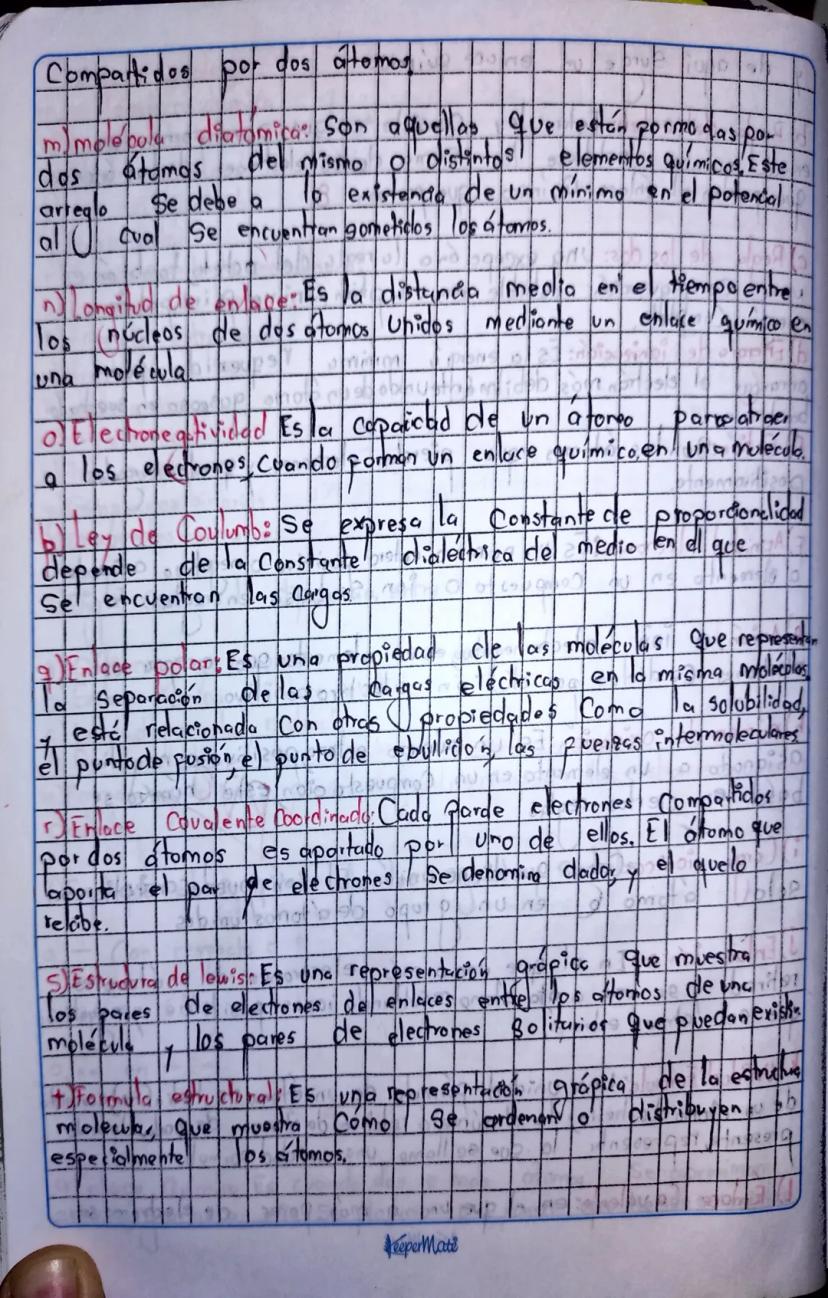 Compartidos por dos átomos
m) molécula diatómica: son aquellas que están formadas por
dos átomos del mismo o distintos elementos químicos. Este
arreglo se debe a la existencia de un mínimo en el potencial
al cual se encuentran sometidos los átomos.
n) Longitud de enlace: Es la distancia media en el tiempo entre
los núcleos de dos átomos unidos mediante un enlace químico en
una molécula.
o) Electronegatividad Es la capaicdad de un átomo para atraer
a los electrones, cuando forman un enlace químico, en una molécula.
p) Ley de Coulumb: Se expresa la Constante de proporcionalidad
depende de la Constante dieléctrica del medio en el que
se encuentran las cargas
q) Enlace polar: Es una propiedad de las moléculas que representan
la separación de las cargas eléctricas en la misma moléculas,
y está relacionada con otras propiedades como la solubilidad,
el punto de fusión, el punto de ebullición, las fuerzas intermoleculares
r) Enlace Covalente Coordinado: Cada parde electrones Compartidos
por dos átomos es aportado por uno de ellos. El átomo que
aporta el par de electrones se denomina dador, y el que lo
recibe.
s) Estructura de lewis: Es una representación gráfica que muestra
los pares de electrones de enlaces entre los átomos de una
molécula y los pares de electrones solitarios que puedan existir.
t) Formula estructural: Es una representación gráfica de la estructura
molecular, que muestra cómo se ordenan o distribuyen
especialmente los átomos.
KeeperMate